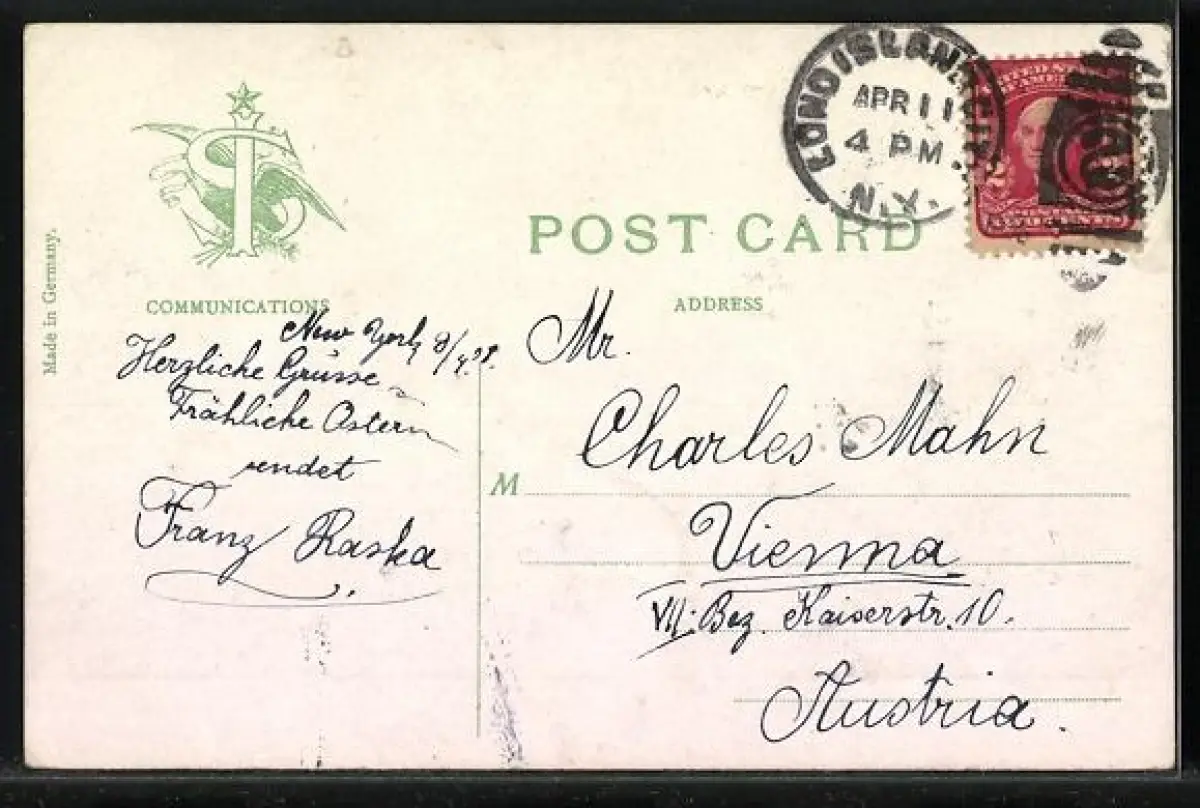 LONG ISLAND CITY
APR 11
4 PM
N.Y.
UNITED STATES
OF AMERICA
2
TWO CENTS
POST CARD
Made in Germany.
COMMUNICATIONS
ADDRESS
New York 8/4.08.
Herzliche Grüsse
Frähliche Ostern
sendet
Franz Raska
Mr.
Charles Mahn
M
Vienna
VII. Bez. Kaiserstr. 10.
Austria.